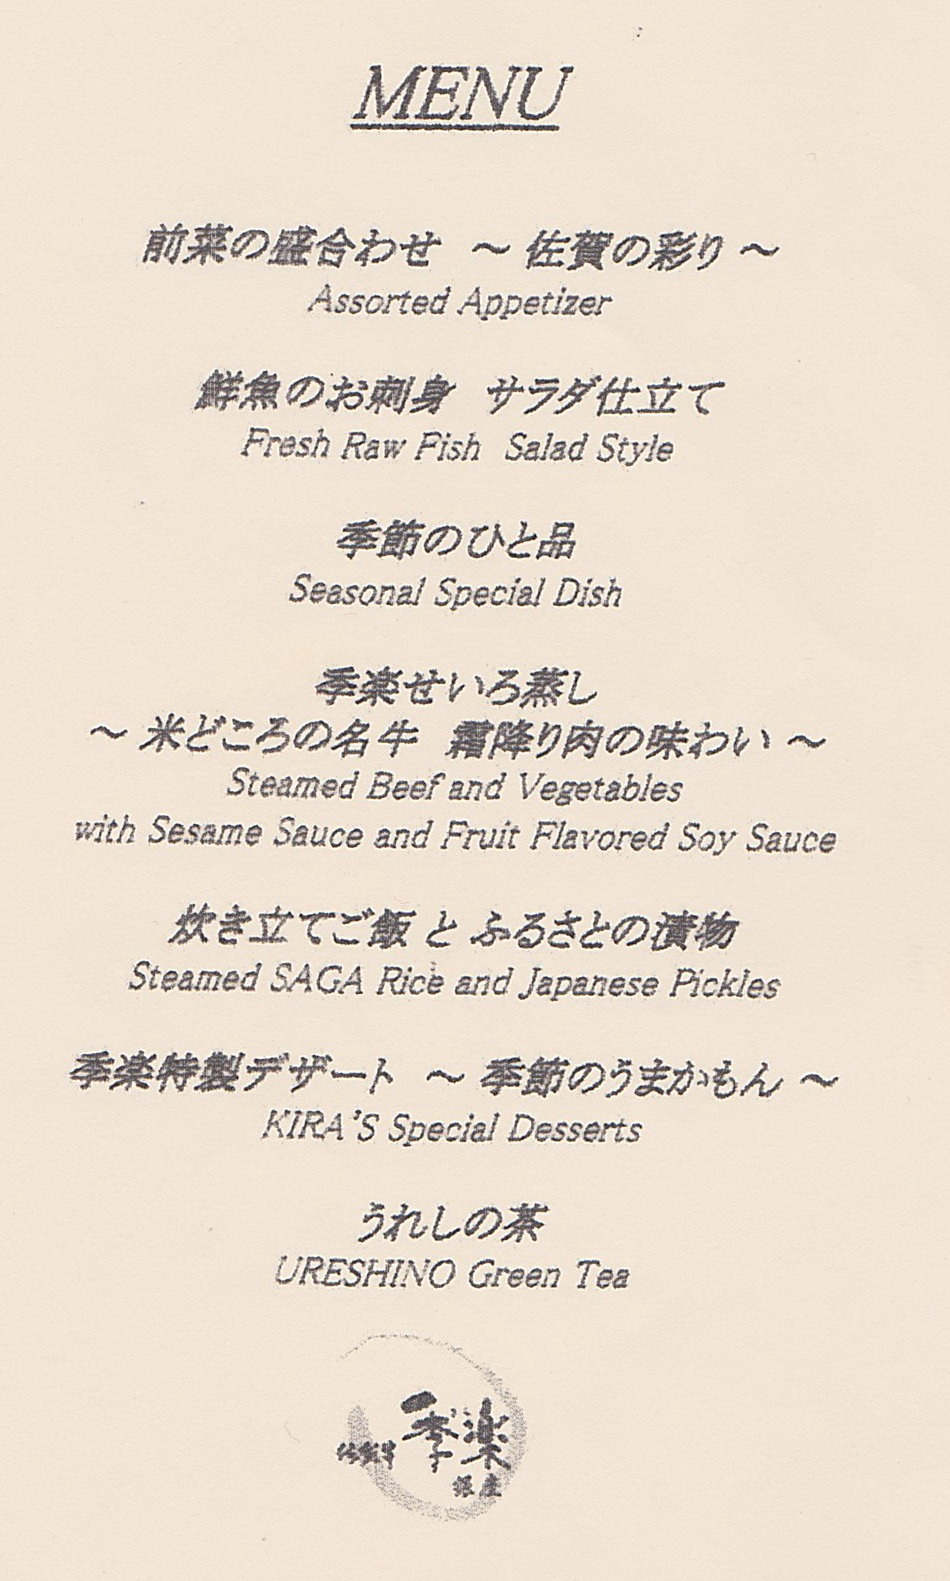 MENU
前菜の盛合わせ ～ 佐賀の彩り ～
Assorted Appetizer
鮮魚のお刺身 サラダ仕立て
Fresh Raw Fish Salad Style
季節のひと品
Seasonal Special Dish
季楽せいろ蒸し
～ 米どころの名牛 霜降り肉の味わい ～
Steamed Beef and Vegetables
with Sesame Sauce and Fruit Flavored Soy Sauce
炊き立てご飯 と ふるさとの漬物
Steamed SAGA Rice and Japanese Pickles
季楽特製デザート ～ 季節のうまかもん ～
KIRA'S Special Desserts
うれしの茶
URESHINO Green Tea
佐賀牛 季楽
銀座